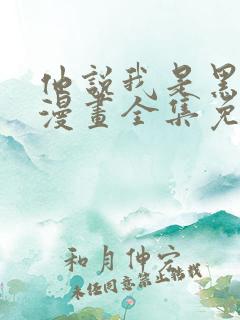 他說我是黑
漫畫全集免
和月伸宏
未經同意禁止轉載